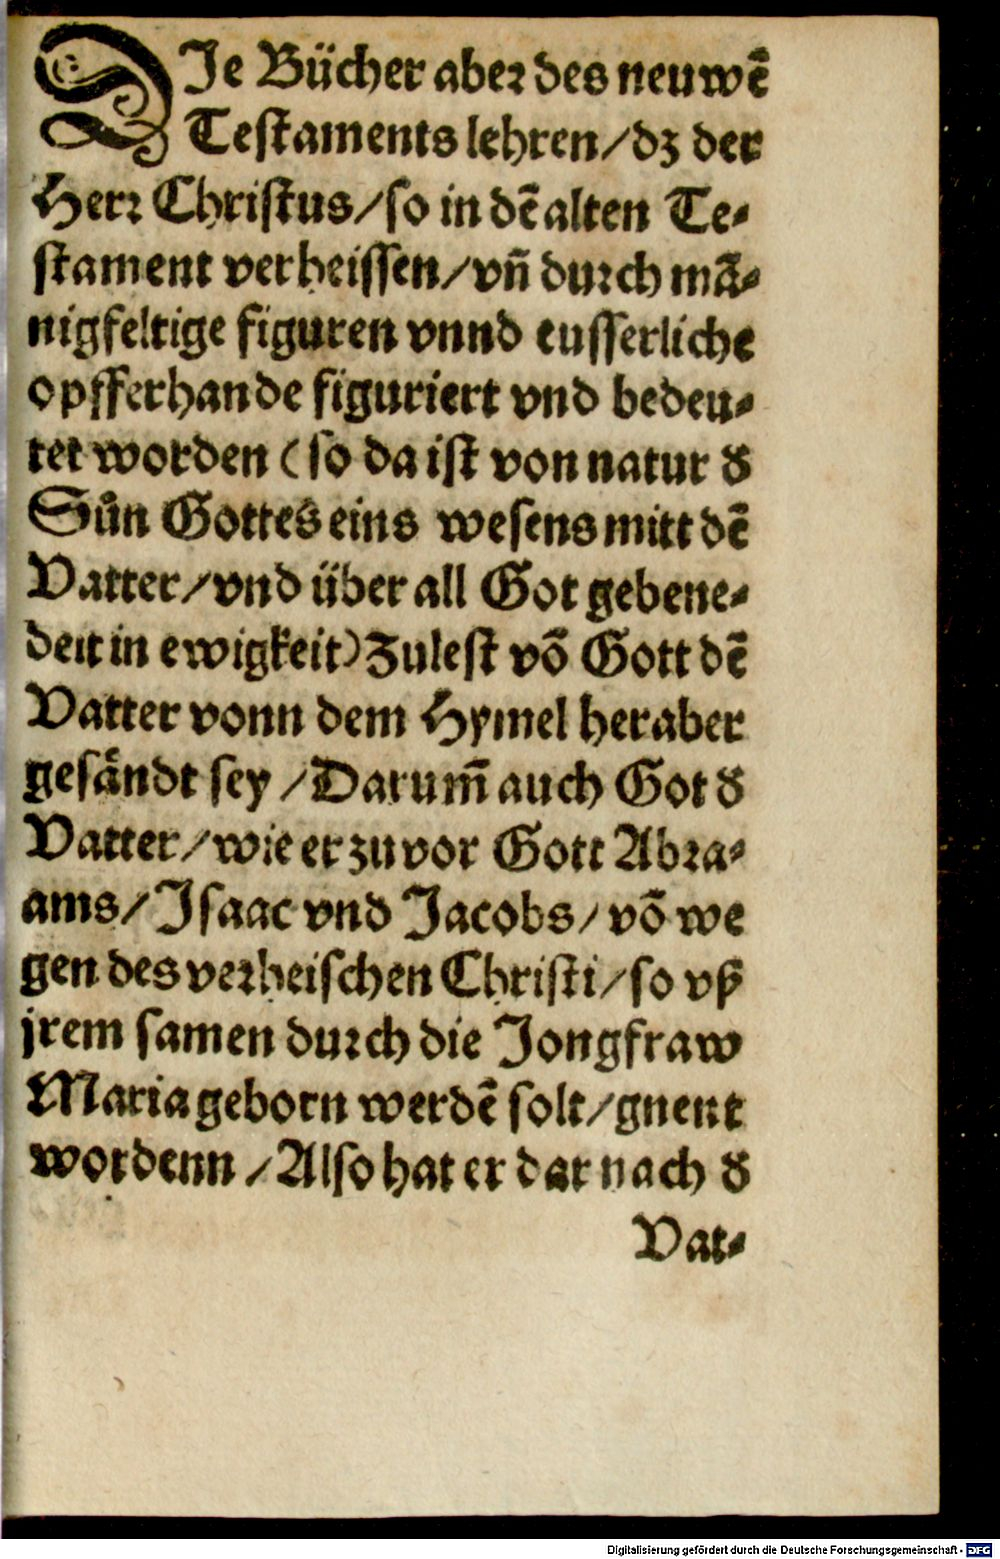 DIe Bücher aber des neuwē
Testaments lehren/dz der
Herr Christus/so in dē alten Te-
stament verheissen/vñ durch mā-
nigfeltige figuren vnnd eusserliche
opfferhande figuriert vnd bedeu-
tet worden (so da ist von natur d̕
Sůn Gottes eins wesens mitt dē
Vatter/vnd über all Got gebene-
deit in ewigkeit) Zulest vō Gott dē
Vatter vonn dem Hymel heraber
gesändt sey/Darum̄ auch Got d̕
Vatter/wie er zuvor Gott Abra-
ams/Isaac vnd Jacobs/vō we
gen des verheischen Christi/so vß
jrem samen durch die Jongfraw
Maria geborn werdē solt/gnent
wordenn/Also hat er dar nach d̕
Vat-
Digitalisierung gefördert durch die Deutsche Forschungsgemeinschaft - DFG